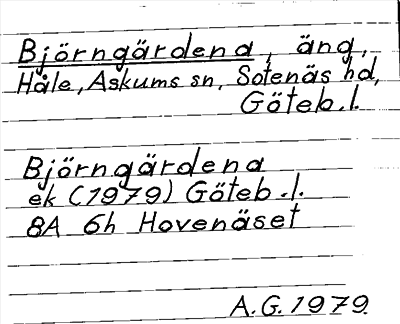 Björngärdena, äng,
Håle, Askums sn, Sotenäs hd,
Göteb.l.
Björngärdena
ek (1979) Göteb.l.
8A 6h Hovenäset
A.G.1979.